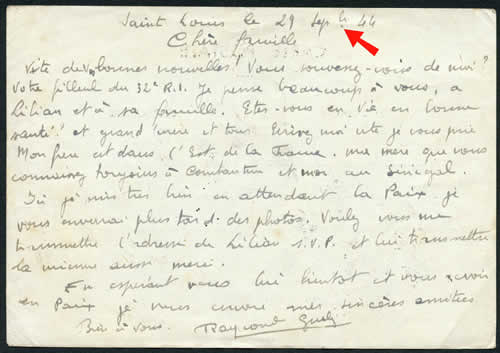 Saint Louis le 29 Sept 44
Chère famille
Vite de vos bonnes nouvelles! Vous souvenez-vous de moi?
Votre filleul du 32e R.I. Je pense beaucoup à vous, a
Lilian et à sa famille. Etes-vous en vie en bonne
santé! et grand'mère et tous. Ecrivez moi vite je vous prie
Mon frère est dans l'Est de la France, ma mère que vous
connaissez toujours à Constantine et moi au Sénégal.
Ici je suis très bien en attendant la Paix. je
vous enverrai plus tard des photos. Voulez vous me
transmettre l'adresse de Lilian S.V.P. et lui transmettre
la mienne aussi merci.
En espérant vous lire bientot et vous revoir
en Paix je vous envoie mes sincères amitiés
Bien à vous. Raymond